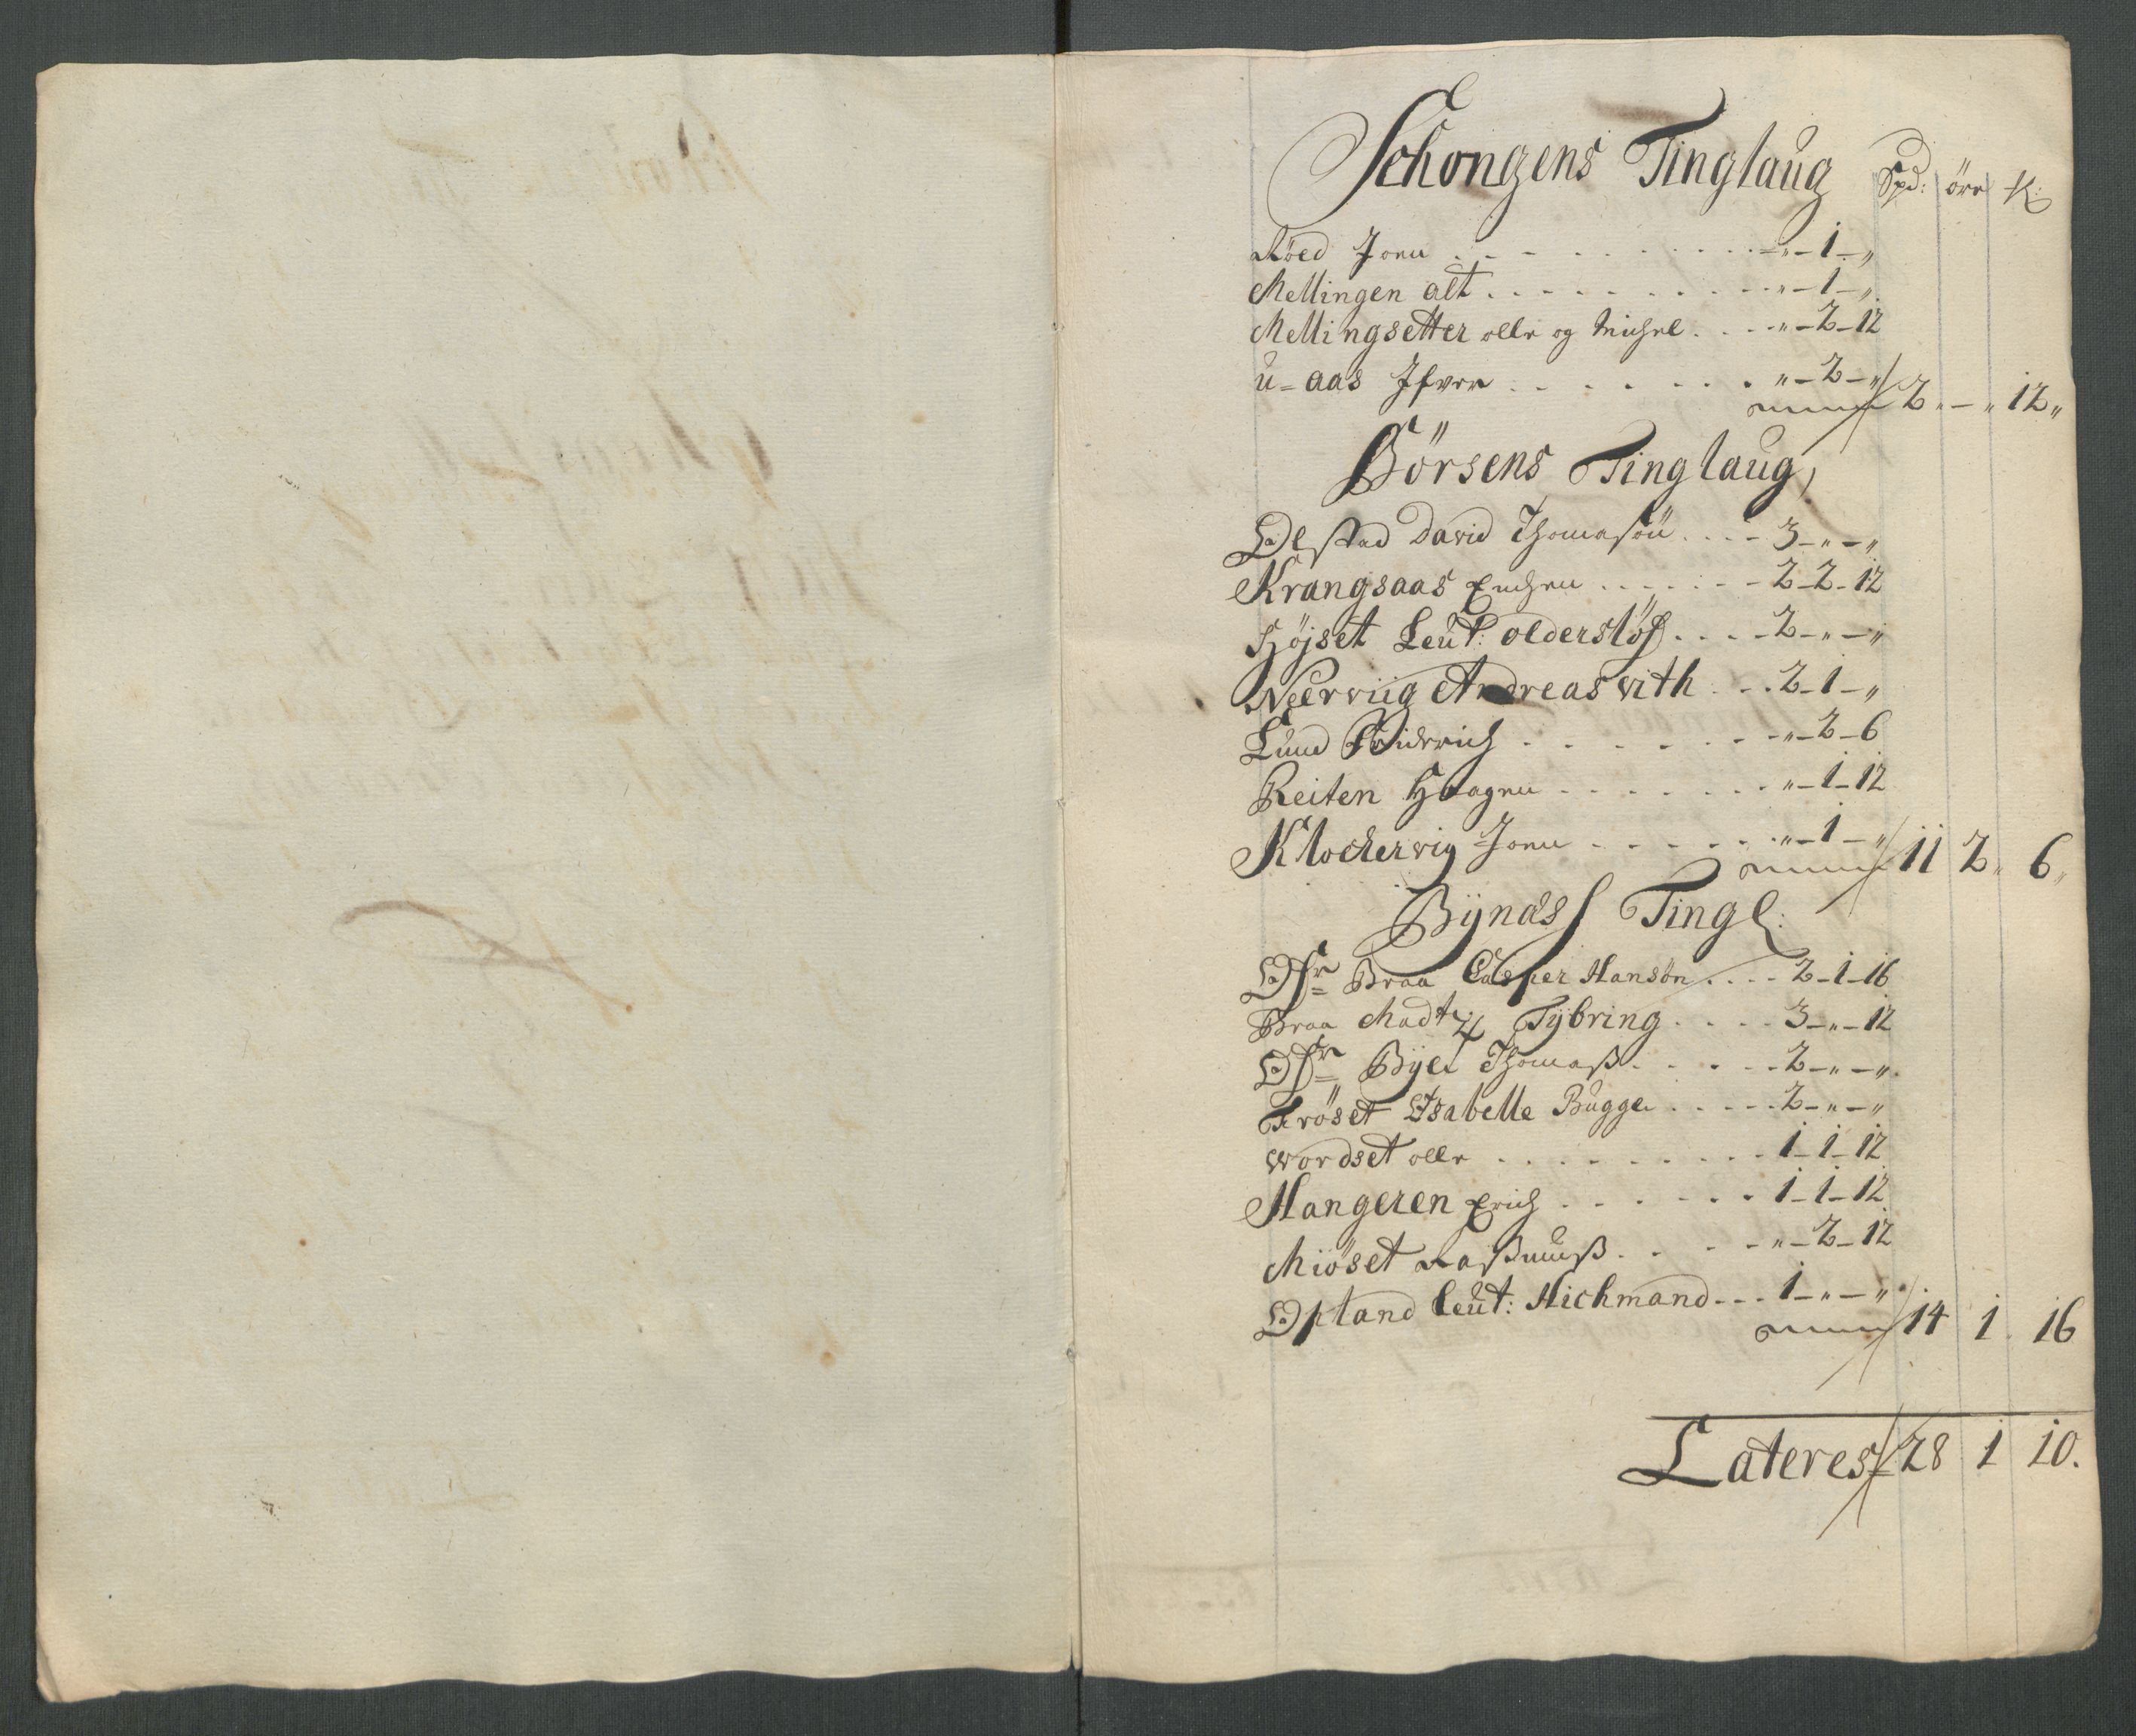 Schongens Tinglaug Spd: öre K:
Röed Joen . . . . . . . „ – 1 – „
Mellingen alt . . . . . . . „ – 1 – „
Mellingsetter olle og Michel . . . „ – 2 – 12
u – aas Ifver . . . . . . . „ – 2 – „
2 „ – „ 12 „
Börsens Tinglaug
Ölstad David Thomasön . . . . 3 – „ – „
Krangsaas Enchen . . . . . . 2 – 2 – 12
Höjset Leut: olderslöf . . . . 2 – „ – „
Neerviig Andreas with . . . 2 – 1 – „
Lund Fridrich . . . . . . . „ – 2 – 6
Reiten Haagen . . . . . . . „ – 1 – 12
Klockervig Joen . . . . . . „ – 1 – „
11 2 „ 6 „
Bÿnæs Tingl:
Öfr Braa Casper Hansön . . . . 2 – 1 – 16
Braa Madtz Tÿbring . . . . 3 – „ – 12
Öfr Bÿe Thomaß . . . . . . 2 – „ – „
Fröset Isabelle Bugge . . . . . 2 – „ – „
wordset olle . . . . . . . . 1 – 1 – 12
Hangeren Erich . . . . . . 1 – 1 – 12
Miöset Raßmuß . . . . . „ – 2 – 12
Opland Leut: Hichmand . . . 1 – „ – „
14 1 16
Lateres 28 1 10.